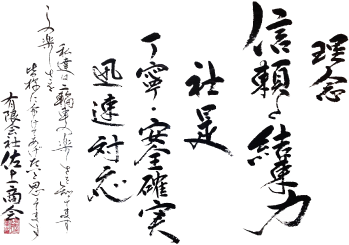 理念
信頼と結束力
社是
丁寧・安全確実
迅速対応
私達は二輪車の楽しさを知ってます
この楽しさを
皆様にわけてあげたいと思ってます
有限会社佐上商会